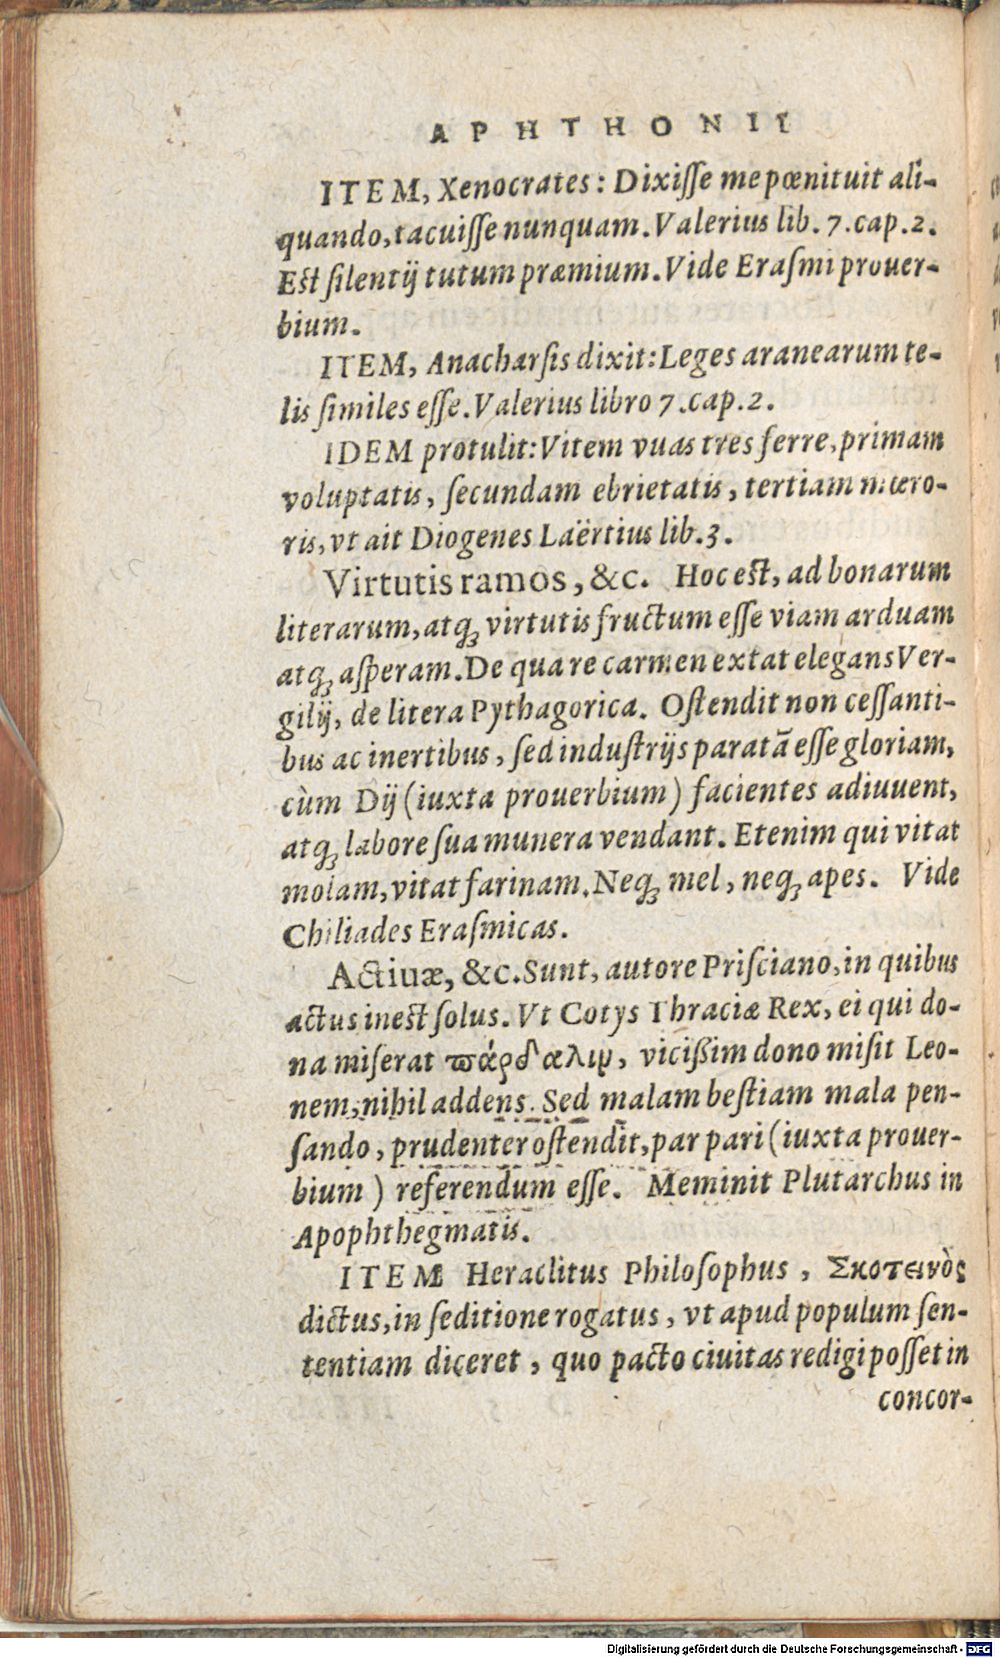 APHTHONII
ITEM, Xenocrates: Dixiſſe me pœnituit ali-
quando, tacuiſſe nunquam. Valerius lib. 7. cap. 2.
Est ſilentij tutum præmium. Vide Eraſmi prouer-
bium.
ITEM, Anacharſis dixit: Leges aranearum te-
lis ſimiles eſſe. Valerius libro 7. cap. 2.
IDEM protulit: Vitem vuas tres ferre, primam
voluptatis, ſecundam ebrietatis, tertiam mœro-
ris, vt ait Diogenes Laërtius lib. 3.
Virtutis ramos, &c. Hoc est, ad bonarum
literarum, atq; virtutis fructum eſſe viam arduam
atq; aſperam. De qua re carmen extat elegans Ver-
gilij, de litera Pythagorica. Oſtendit non ceſſanti-
bus ac inertibus, ſed induſtrijs paratā eſſe gloriam,
cùm Dij (iuxta prouerbium) facientes adiuuent,
atq; labore ſua munera vendant. Etenim qui vitat
molam, vitat farinam. Neq; mel, neq; apes. Vide
Chiliades Eraſmicas.
Actiuæ, &c. Sunt, autore Priſciano, in quibus
actus inest ſolus. Vt Cotys Thraciæ Rex, ei qui do-
na miſerat πάρδαλιμ, vicißim dono miſit Leo-
nem, nihil addens. Sed malam beſtiam mala pen-
ſando, prudenter oſtendit, par pari (iuxta prouer-
bium) referendum eſſe. Meminit Plutarchus in
Apophthegmatis.
ITEM Heraclitus Philoſophus, Σκοτεινὸς
dictus, in ſeditione rogatus, vt apud populum ſen-
tentiam diceret, quo pacto ciuitas redigi poſſet in
concor-
Digitalisierung gefördert durch die Deutsche Forschungsgemeinschaft - DFG